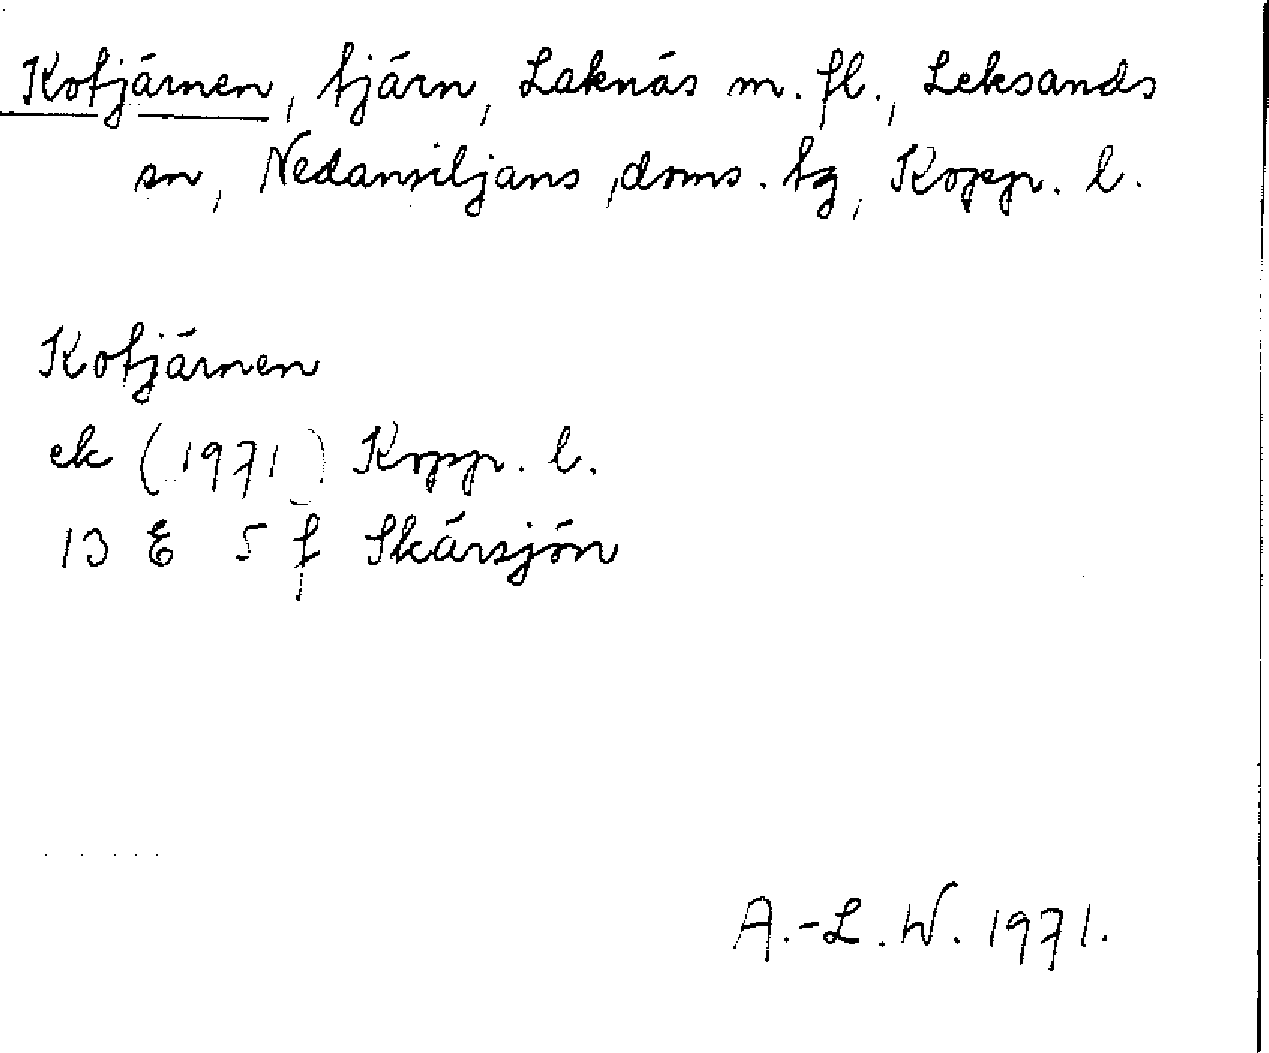 Kotjärnen, tjärn, Laknäs m. fl., Leksands
sn, Nedansiljans doms. tg, Kopp. l.
Kotjärnen
ek (1971) Kopp. l.
13 E 5 f Skärsjön
A.-L. W. 1971.